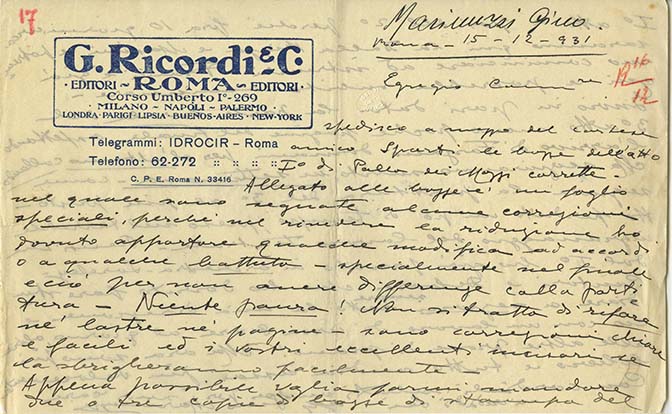 17
Marinuzzi Gino
G. Ricordi & C.
· EDITORI ~ ROMA ~ EDITORI ·
Corso Umberto Iº - 269
· MILANO - NAPOLI - PALERMO ·
LONDRA - PARIGI - LIPSIA - BUENOS-AIRES - NEW-YORK
Telegrammi: IDROCIR - Roma
Telefono: 62-272
C. P. E. Roma N. 33416
Roma - 15 - 12 - 931
16
12
Egregio Comm.re
spedisco a mezzo del cortese
amico Sparti le bozze dell'atto
Iº di Palla dei Mozzi corrette -
Allegato alle bozze c'è un foglio
nel quale sono segnate alcune correzioni
speciali, perchè nel rivedere la riduzione ho
dovuto apportare qualche modifica ad accordi
o a qualche battuta - specialmente nel finale
e ciò per non avere differenze colla parti
tura - Niente paura! Non si tratta di rifare
nè lastre nè pagine - sono correzioni chiare
e facili ed i vostri eccellenti incisori se
la sbrigheranno facilmente
Appena possibile voglia farmi mandare
due o tre copie di bozze di stampa del